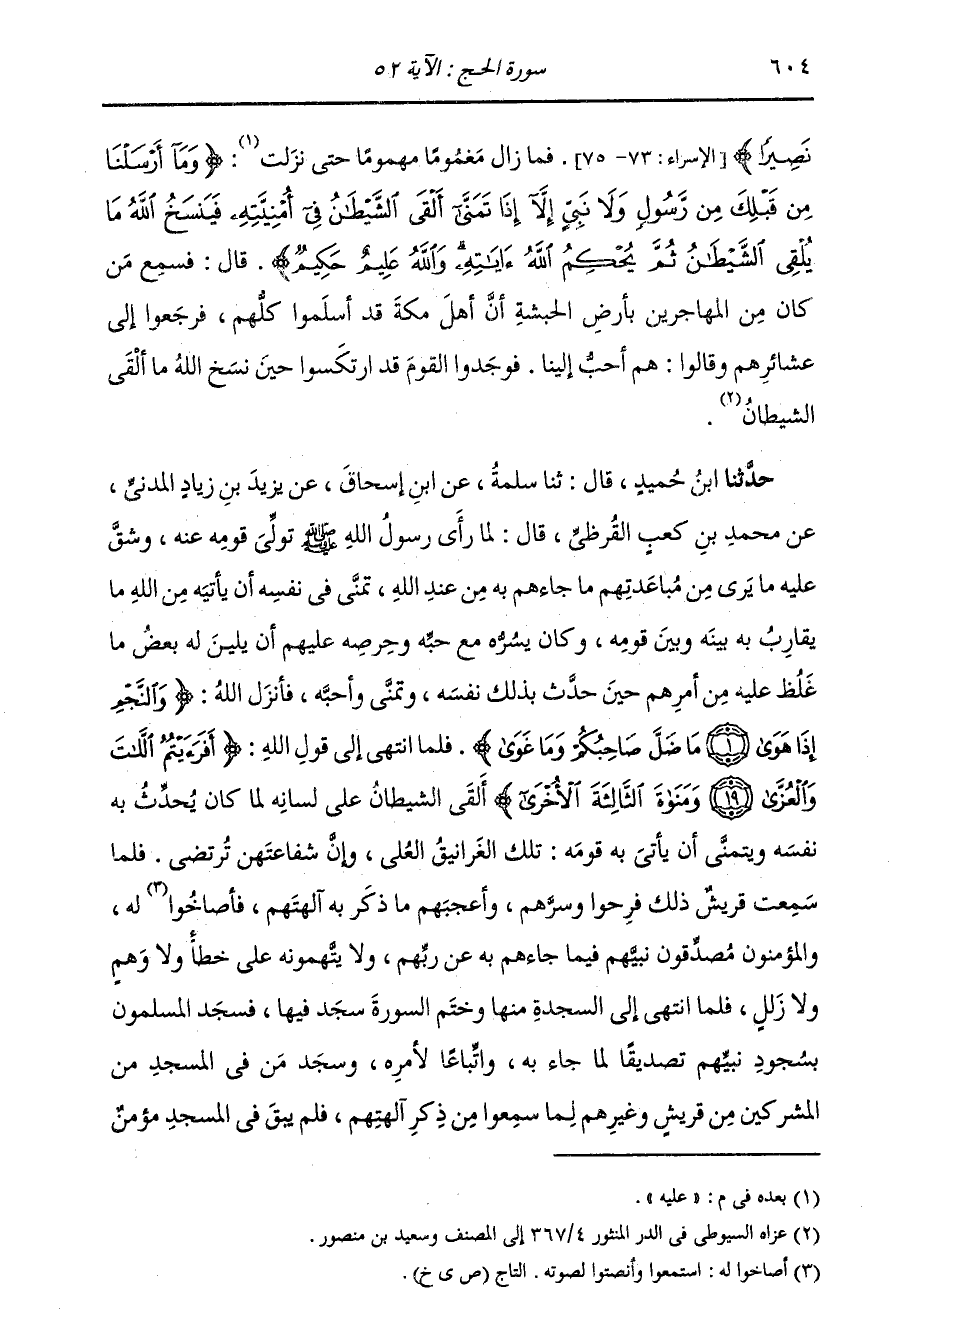 ٦٠٤ سورة الحج : الآية ٥٢
نَصِيرًا ﴾ [الإسراء: ٧٣- ٧٥] . فما زال مَغمُومًا مهمومًا حتى نزَلت(١) : ﴿ وَمَآ أَرْسَلْنَا
مِن قَبْلِكَ مِن رَّسُولٍ وَلَا نَبِيٍّ إِلَّآ إِذَا تَمَنَّىٰٓ أَلْقَى ٱلشَّيْطَٰنُ فِىٓ أُمْنِيَّتِهِۦ فَيَنسَخُ ٱللَّهُ مَا
يُلْقِى ٱلشَّيْطَٰنُ ثُمَّ يُحْكِمُ ٱللَّهُ ءَايَٰتِهِۦۗ وَٱللَّهُ عَلِيمٌ حَكِيمٌ﴾ . قال : فسمِع مَن
كان مِن المهاجرين بأرضِ الحبشةِ أنَّ أهلَ مكةَ قد أسلَموا كلُّهم ، فرجَعوا إلى
عشائرِهم وقالوا : هم أحبُّ إلينا . فوجَدوا القومَ قد ارتكَسوا حينَ نسَخ اللهُ ما ألْقَى
الشيطانُ(٢) .
حدَّثنا ابنُ حُميدٍ ، قال : ثنا سلمةُ ، عن ابنِ إسحاقَ ، عن يزيدَ بنِ زيادٍ المدنىِّ ،
عن محمدِ بنِ كعبٍ القُرظىِّ ، قال : لما رأَى رسولُ اللهِ ﷺ تولِّىَ قومِه عنه ، وشقَّ
عليه ما يَرى مِن مُباعَدتِهم ما جاءهم به مِن عندِ اللهِ ، تمنَّى فى نفسِه أن يأتيَه مِن اللهِ ما
يقارِبُ به بينَه وبينَ قومِه ، وكان يسُرُّه مع حبِّه وحِرصِه عليهم أن يلينَ له بعضُ ما
غَلُظ عليه مِن أمرِهم حينَ حدَّث بذلك نفسَه ، وتمنَّى وأحبَّه ، فأنزَل اللهُ : ﴿ وَٱلنَّجْمِ
إِذَا هَوَىٰ ۝١ مَا ضَلَّ صَاحِبُكُمْ وَمَا غَوَىٰ ﴾ . فلما انتهى إلى قولِ اللهِ : ﴿ أَفَرَءَيْتُمُ ٱللَّٰتَ
وَٱلْعُزَّىٰ ۝١٩ وَمَنَوٰةَ ٱلثَّالِثَةَ ٱلْأُخْرَىٰٓ ﴾ أَلقَى الشيطانُ على لسانِه لما كان يُحدِّثُ به
نفسَه ويتمنَّى أن يأتىَ به قومَه : تلك الغَرانيقُ العُلى ، وإنَّ شفاعتَهن تُرتضى . فلما
سَمِعت قريشٌ ذلك فرِحوا وسرَّهم ، وأعجبَهم ما ذكَر به آلهتَهم ، فأصاخُوا(٣) له ،
والمؤمنون مُصدِّقون نبيَّهم فيما جاءهم به عن ربِّهم ، ولا يتَّهمونه على خطأً ولا وَهمٍ
ولا زَللٍ ، فلما انتهى إلى السجدةِ منها وختَم السورةَ سجَد فيها ، فسجَد المسلمون
بسُجودِ نبيِّهم تصديقًا لما جاء به ، واتِّباعًا لأمرِه ، وسجَد مَن فى المسجدِ من
المشركين مِن قريشٍ وغيرِهم لِما سمِعوا مِن ذِكرِ آلهتِهم ، فلم يبقَ فى المسجدِ مؤمنٌ
(١) بعده فى م : « عليه » .
(٢) عزاه السيوطى فى الدر المنثور ٣٦٧/٤ إلى المصنف وسعيد بن منصور .
(٣) أصاخوا له : استمعوا وأنصتوا لصوته . التاج (ص ى خ) .